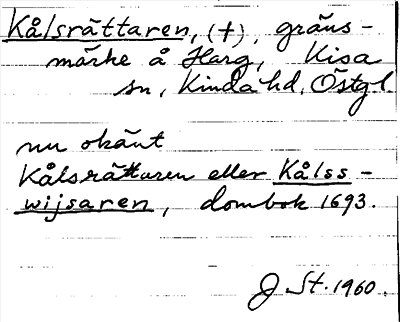 Kålsrättaren, (+), gräns-
märke å Harg, Kisa
sn, Kinda hd, Östgl
nu okänt
Kålsrätturen eller Kålss-
wijsaren, dombok 1693.
J St. 1960.